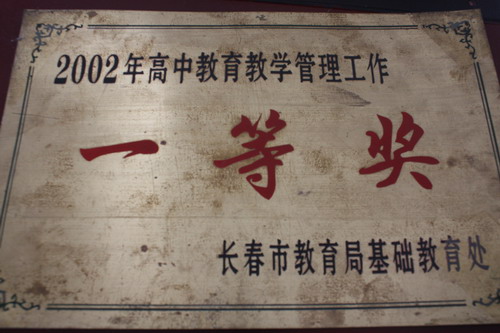 2002年高中教育教学管理工作
一等奖
长春市教育局基础教育处